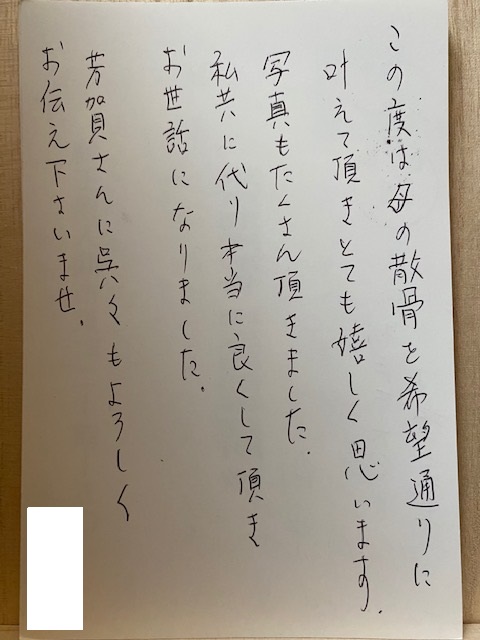 この度は母の散骨を希望通りに
叶えて頂きとても嬉しく思います.
写真もたくさん頂きました.
私共に代り本当に良くして頂き
お世話になりました.
芳賀さんに呉々もよろしく
お伝え下さいませ.